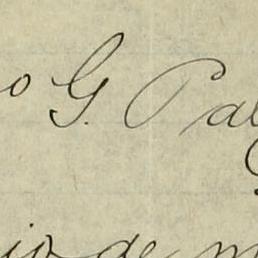 o G. Pal
io de m